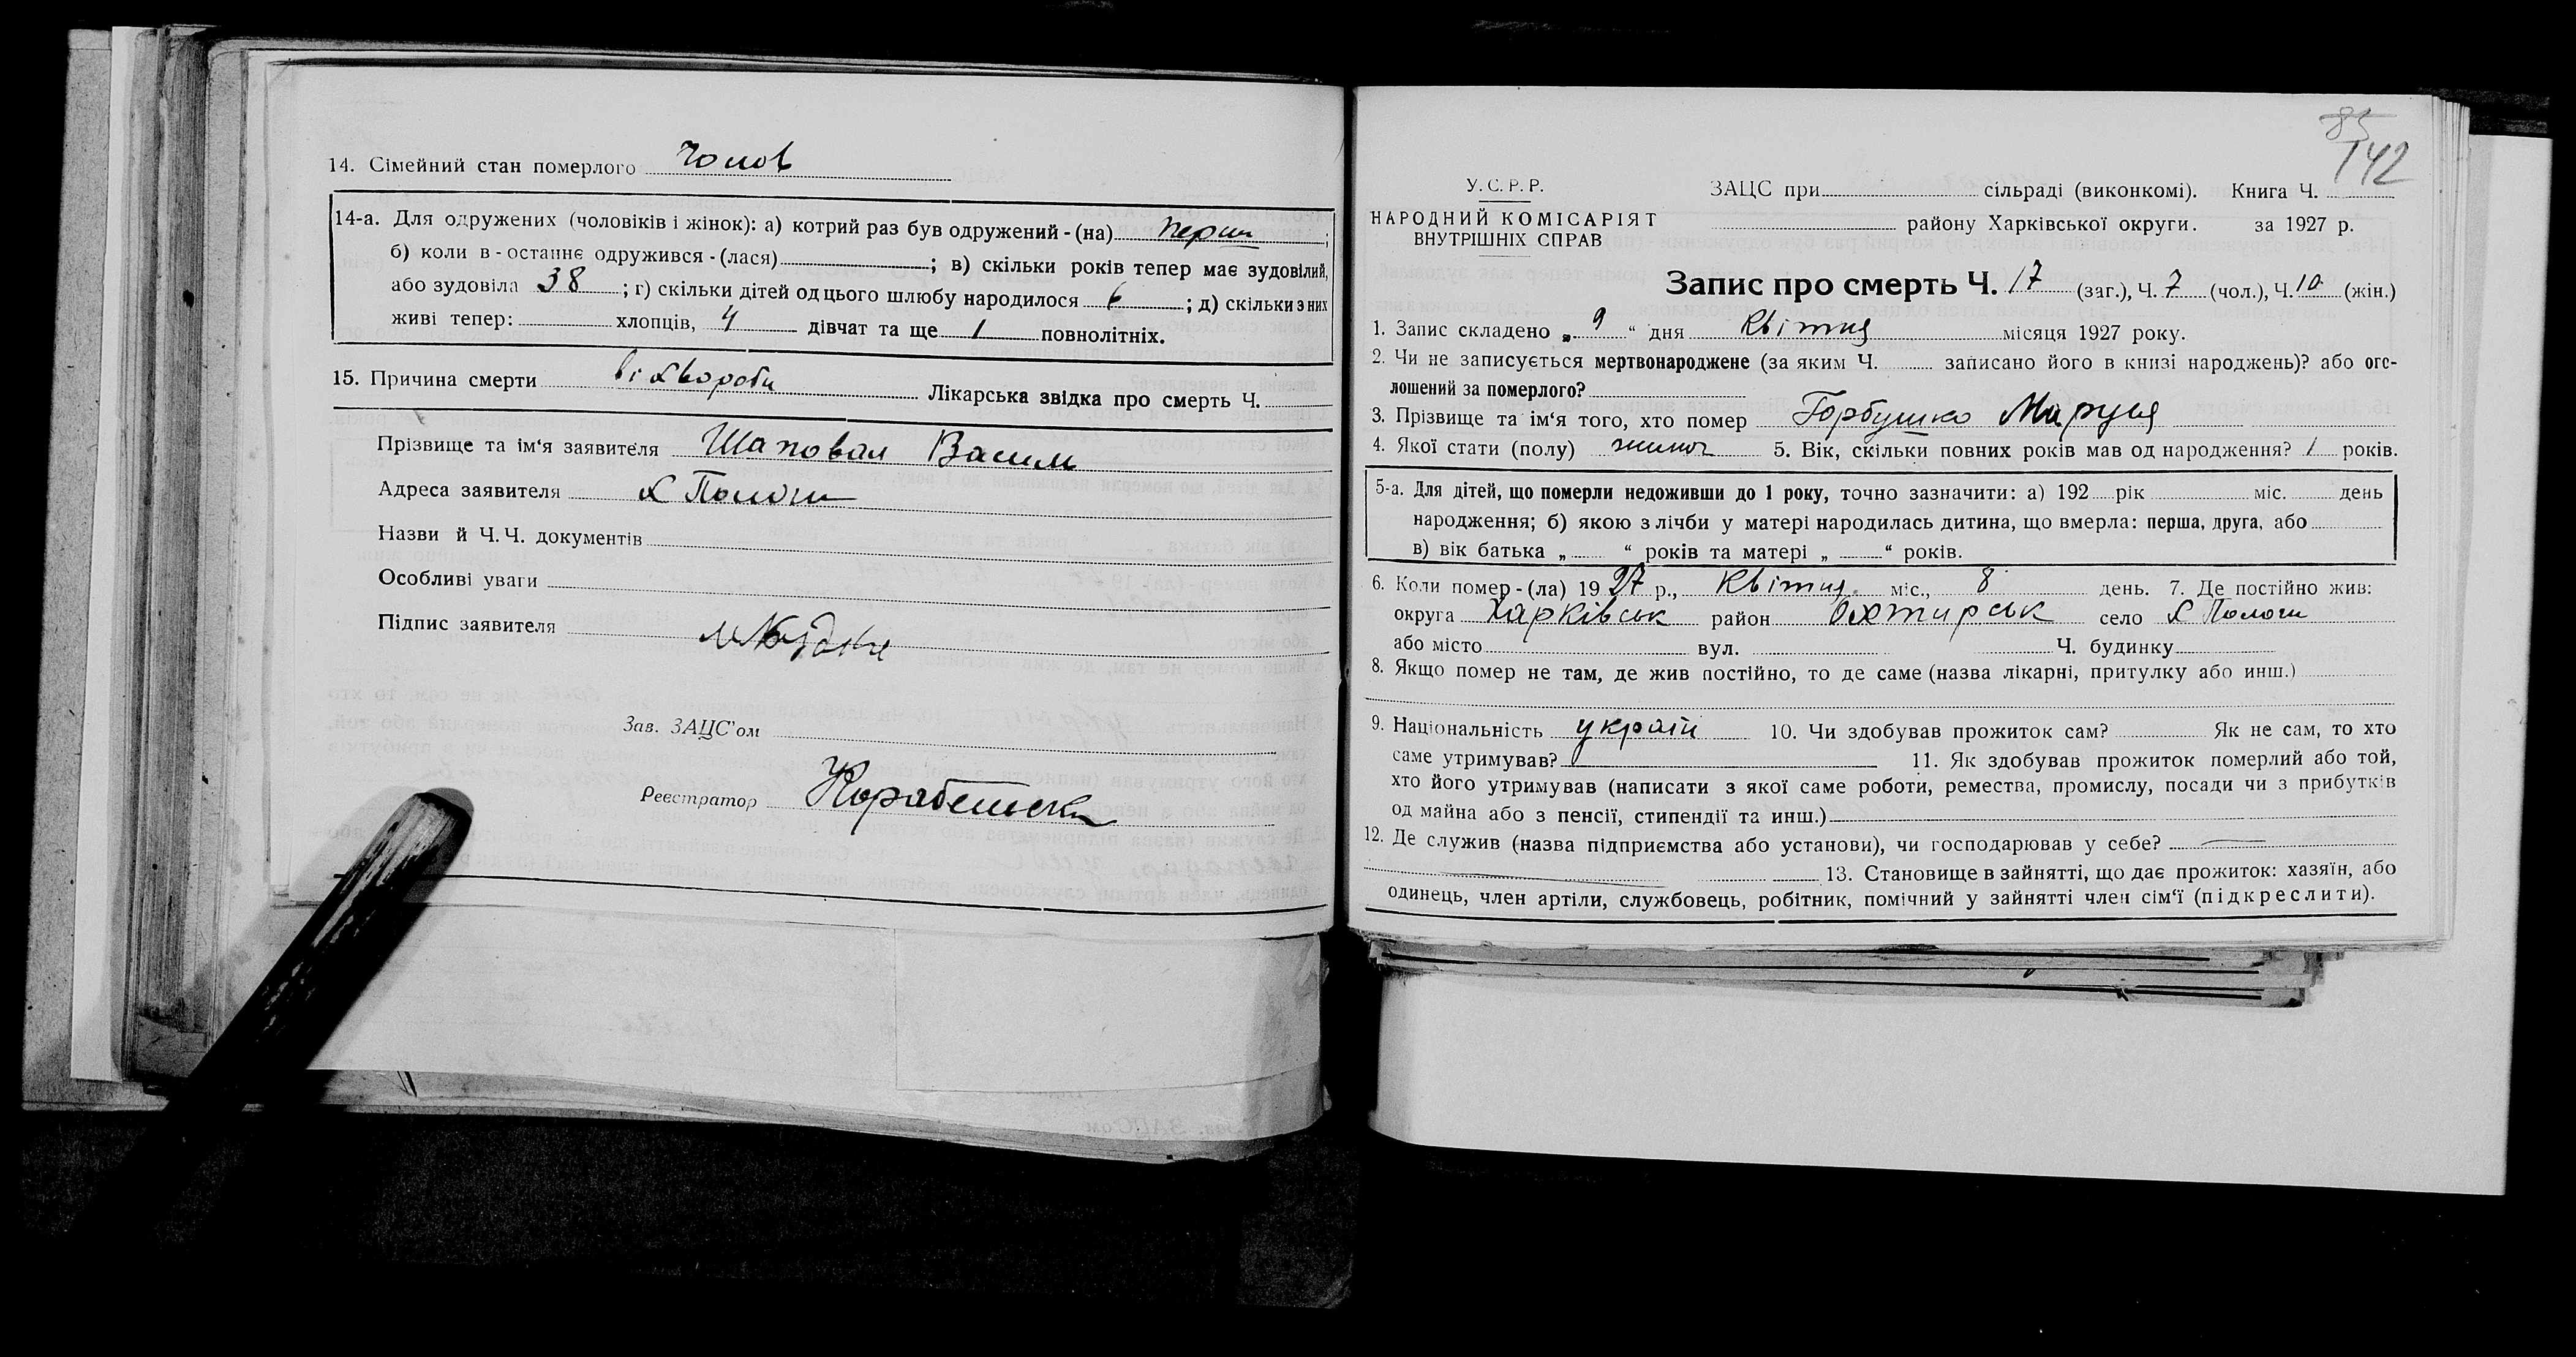 14. Сімейний стан померлого Чолов
14-а. Для одружених (чоловіків і жінок): а) котрий раз був одружений-(на) перш ;
б) коли в-останнє одружився-(лася) ; в) скільки років тепер має зудовілий,
або зудовіла 38 ; г) скільки дітей од цього шлюбу народилося 6 ; д) скільки з них
живі тепер: хлопців, 4 дівчат та ще 1 повнолітніх.
15. Причина смерти від хвороби Лікарська звідка про смерть Ч.
Прізвище та ім'я заявителя Шаповал Васил
Адреса заявителя х Пологи
Назви й Ч.Ч. документів
Особливі уваги
Підпис заявителя
Зав. ЗАЦС'ом
Реєстратор
85
142
У.С.Р.Р.
НАРОДНИЙ КОМІСАРІЯТ
ВНУТРІШНІХ СПРАВ
ЗАЦС при сільраді (виконкомі). Книга Ч.
району Харківської округи. за 1927 р.
Запис про смерть Ч. 17 (заг.), Ч. 7 (чол.), Ч. 10 (жін.)
1. Запис складено „ 9 “ дня квітня місяця 1927 року.
2. Чи не записується мертвонароджене (за яким Ч. записано його в книзі народжень)? або ого-
лошений за померлого?
3. Прізвище та ім'я того, хто помер Горбушко Маруся
4. Якої стати (полу) жиноч 5. Вік, скільки повних років мав од народження? 1 років.
5-а. Для дітей, що померли недоживши до 1 року, точно зазначити: а) 192 рік міс. день
народження; б) якою з лічби у матері народилась дитина, що вмерла: перша, друга, або
в) вік батька „ “ років та матері „ “ років.
6. Коли помер-(ла) 1927 р., квітня міс., 8 день. 7. Де постійно жив:
округа Харківськ район Охтирськ село х Пологи
або місто вул. Ч. будинку
8. Якщо помер не там, де жив постійно, то де саме (назва лікарні, притулку або инш.)
9. Національність україн 10. Чи здобував прожиток сам? Як не сам, то хто
саме утримував? 11. Як здобував прожиток померлий або той,
хто його утримував (написати з якої саме роботи, ремества, промислу, посади чи з прибутків
од майна або з пенсії, стипендії та инш.)
12. Де служив (назва підприємства або установи), чи господарював у себе?
13. Становище в зайнятті, що дає прожиток: хазяїн, або
одинець, член артіли, службовець, робітник, помічний у зайнятті член сім'ї (підкреслити).